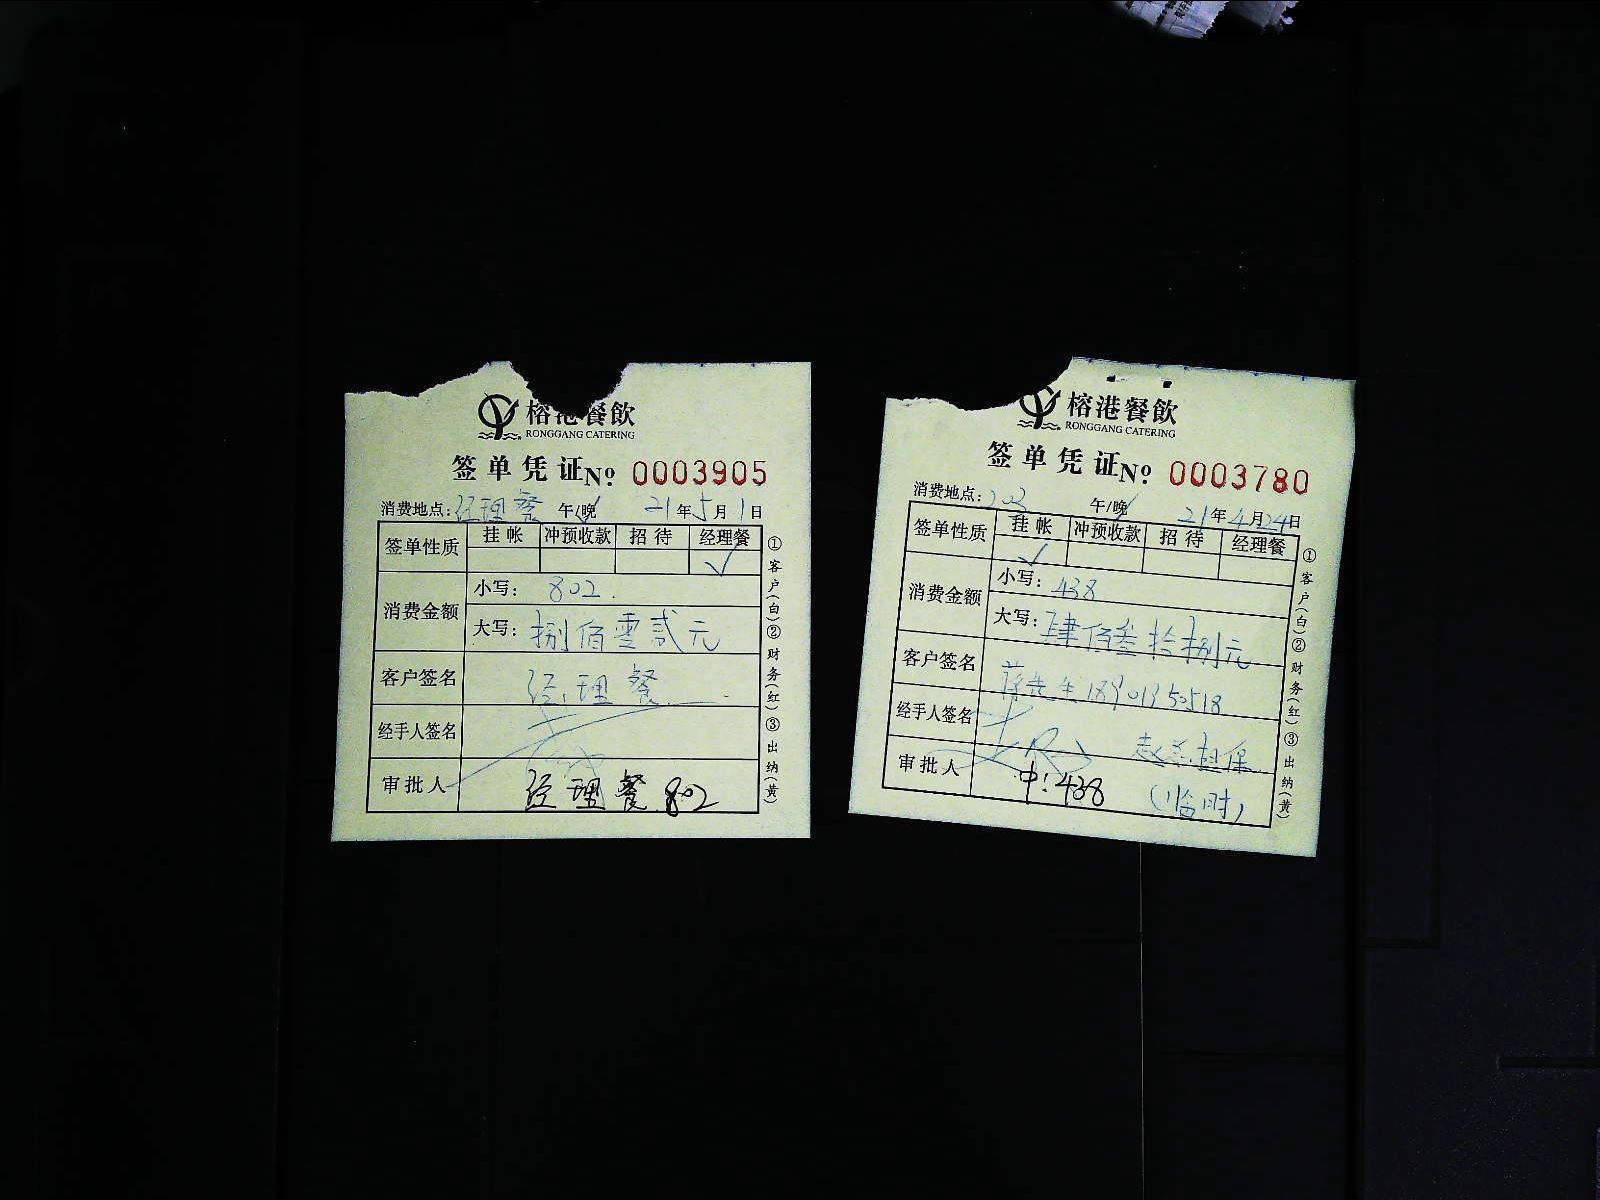 榕港餐飲
RONGGANG CATERING
签单凭证 No: 0003905
消费地点: 经理餐 午/晚 21年5月1日
签单性质 挂帐 冲预收款 招待 经理餐
√
消费金额 小写: 802.
大写: 捌佰零贰元
客户签名 经理餐
经手人签名
审批人 经理餐 802
①客户(白)②财务(红)③出纳(黄)
榕港餐飲
RONGGANG CATERING
签单凭证 No: 0003780
消费地点: 203 午/晚 21年4月24日
签单性质 挂帐 冲预收款 招待 经理餐
√
消费金额 小写: 438
大写: 肆佰叁拾捌元
客户签名 蒋先生 18901350518
经手人签名 赵总担保
审批人 中: 438 (临时)
①客户(白)②财务(红)③出纳(黄)